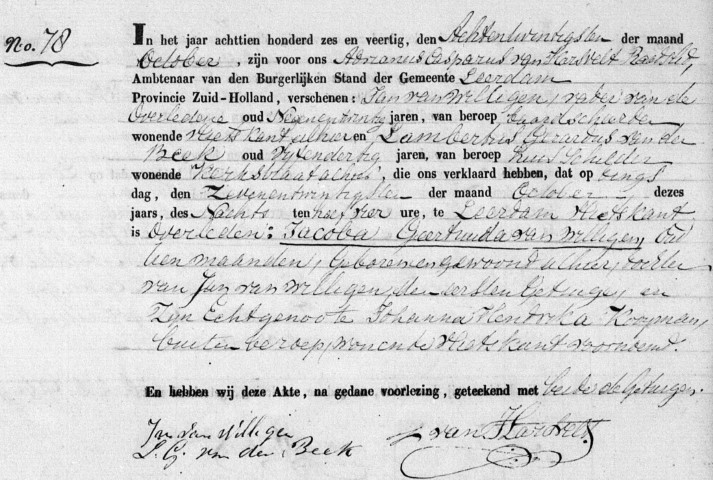 No. 78
In het jaar achttien honderd zes en veertig, den Achtentwintigsten der maand
October, zijn voor ons Adrianus Casparus van Harsvelt
Ambtenaar van den Burgerlijken Stand der Gemeente Leerdam
Provincie Zuid-Holland, verschenen: Jan van Willigen, vader van de
Overledene oud Negenentwintig jaren, van beroep
wonende Vlietskant alhier en Lambertus Gerardus van der
Beek oud Vyfendertig jaren, van beroep huisschilder
wonende Kerkstraat alhier, die ons verklaard hebben, dat op Dings
dag, den Zevenentwintigsten der maand October dezes
jaars, des Nachts ten half vier ure, te Leerdam Vlietskant
is Overleden: Jacoba Geertruida van Willigen, Oud
tien maanden, Geboren en gewoond alhier, dochter
van Jan van Willigen, de eersten Getuige, en
Zyn Echtgenoote Johanna Hendrika Kooyman,
buiten beroep, wonende Vlietskant voornoemt.
En hebben wij deze Akte, na gedane voorlezing, geteekend met beide de Getuigen.
Jn van Willigen
L. G. van der Beek
van Harsvelt